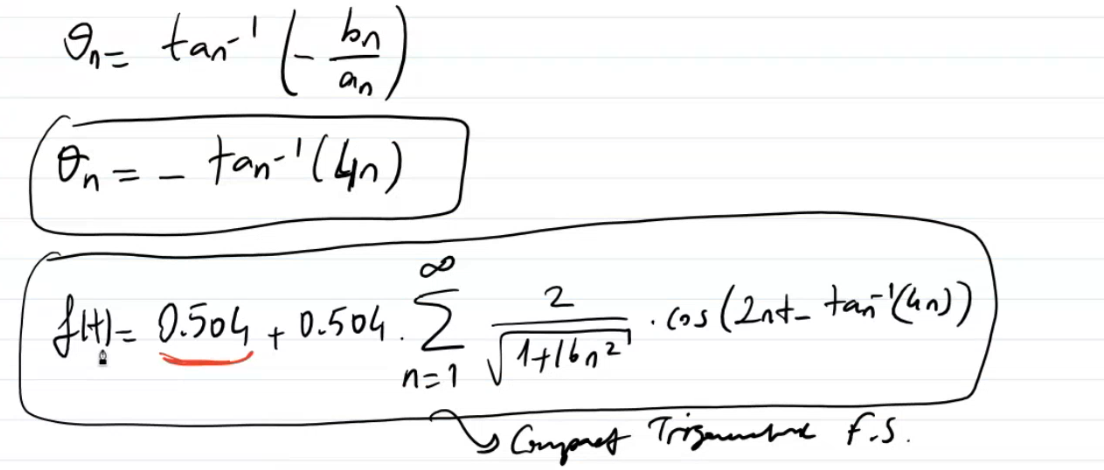 θn = tan⁻¹ (- bn/an)
θn = - tan⁻¹(4n)
f(t) = 0.504 + 0.504 . ∑_{n=1}^{∞} 2/√(1+16n²) . cos(2nt - tan⁻¹(4n))
Compact Trigonometric F.S.